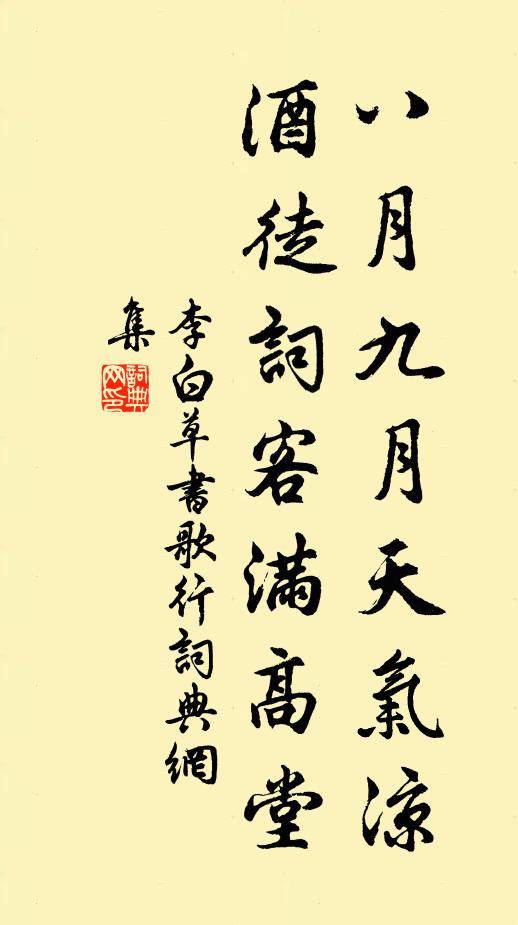 八月九月天氣涼
酒徒詞客滿高堂
李白草書歌行詞典網
集
詞典
网印